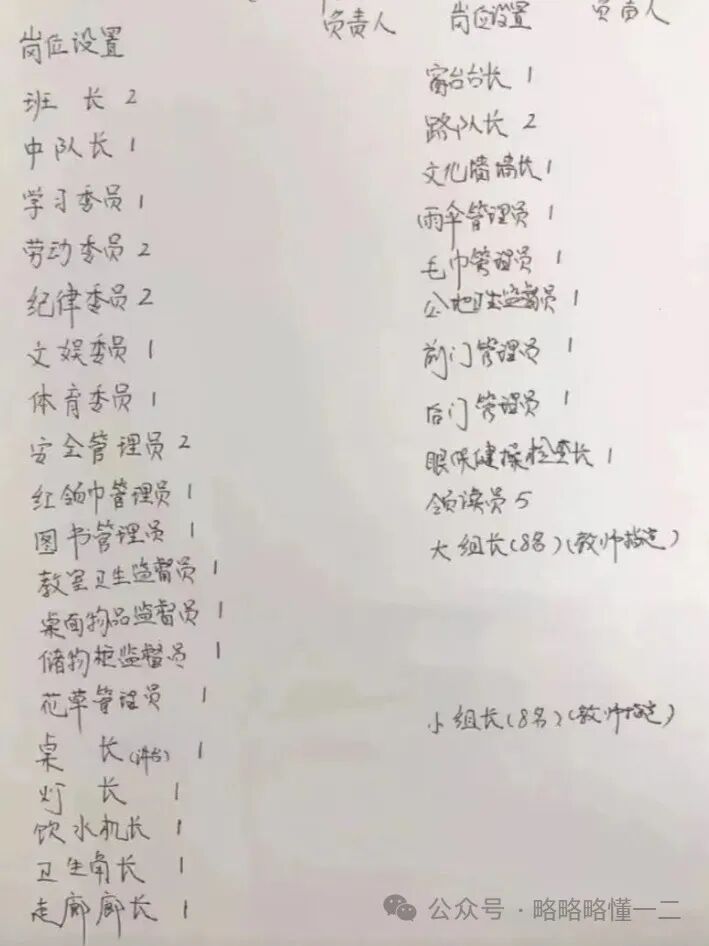 岗位设置
负责人
班 长 2
中队长 1
学习委员 1
劳动委员 2
纪律委员 2
文娱委员 1
体育委员 1
安全管理员 2
红领巾管理员 1
图书管理员 1
教室卫生监督员 1
桌面物品监督员 1
储物柜监督员 1
花草管理员 1
桌 长(讲台) 1
灯 长 1
饮水机长 1
卫生角长 1
走廊廊长 1
岗位设置
负责人
窗台台长 1
路队长 2
文化墙墙长 1
雨伞管理员 1
毛巾管理员 1
公地卫生监督员 1
前门管理员 1
后门管理员 1
眼保健操检查长 1
领读员 5
大组长(8名)(教师指定)
小组长(8名)(教师指定)
公众号·略略略懂一二